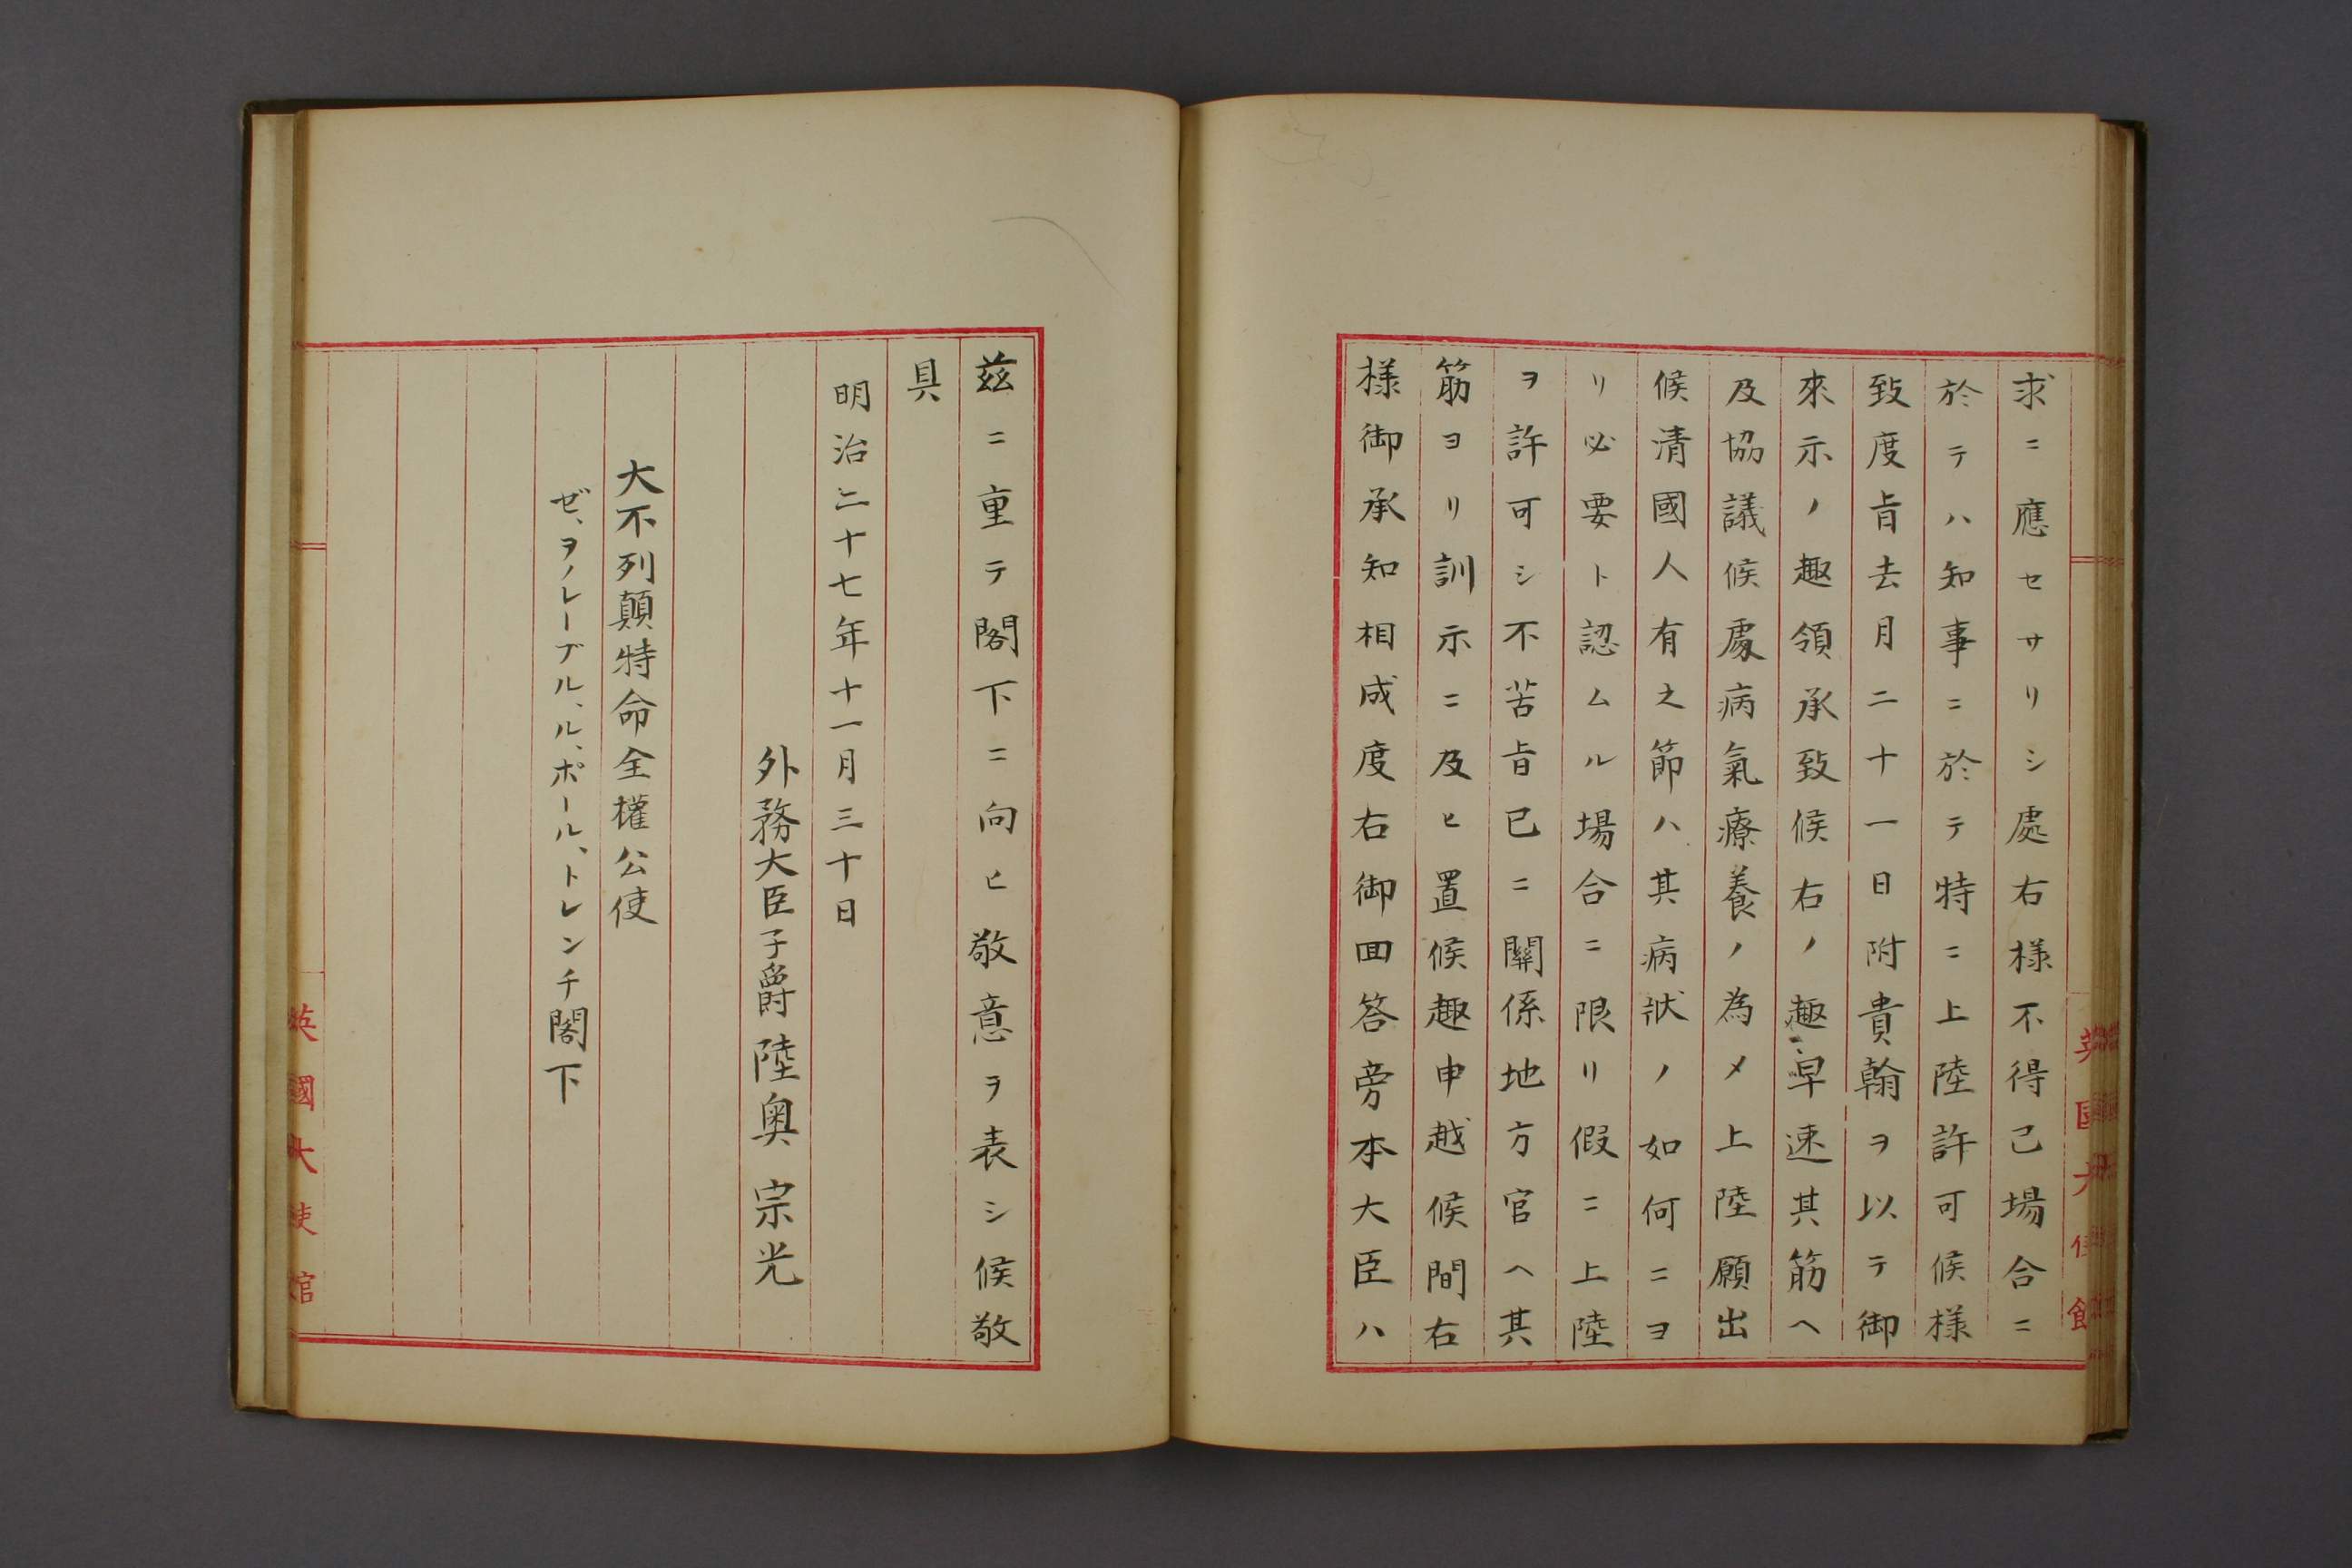 求ニ應セサリシ處右様不得已場合ニ
於テハ知事ニ於テ特ニ上陸許可候様
致度旨去月二十一日附貴翰ヲ以テ御
來示ノ趣領承致候右ノ趣早速其筋ヘ
及協議候處病氣療養ノ為メ上陸願出
候清國人有之節ハ其病狀ノ如何ニヨ
リ必要ト認ムル場合ニ限リ假ニ上陸
ヲ許可シ不苦旨已ニ關係地方官ヘ其
筋ヨリ訓示ニ及ヒ置候趣申越候間右
様御承知相成度右御回答旁本大臣ハ
英國大使館
茲ニ重テ閣下ニ向ヒ敬意ヲ表シ候敬
具
明治二十七年十一月三十日
外務大臣子爵陸奥宗光
大不列顛特命全權公使
ゼ、ヲノレーブル、ル、ポール、トレンチ閣下
英國大使館